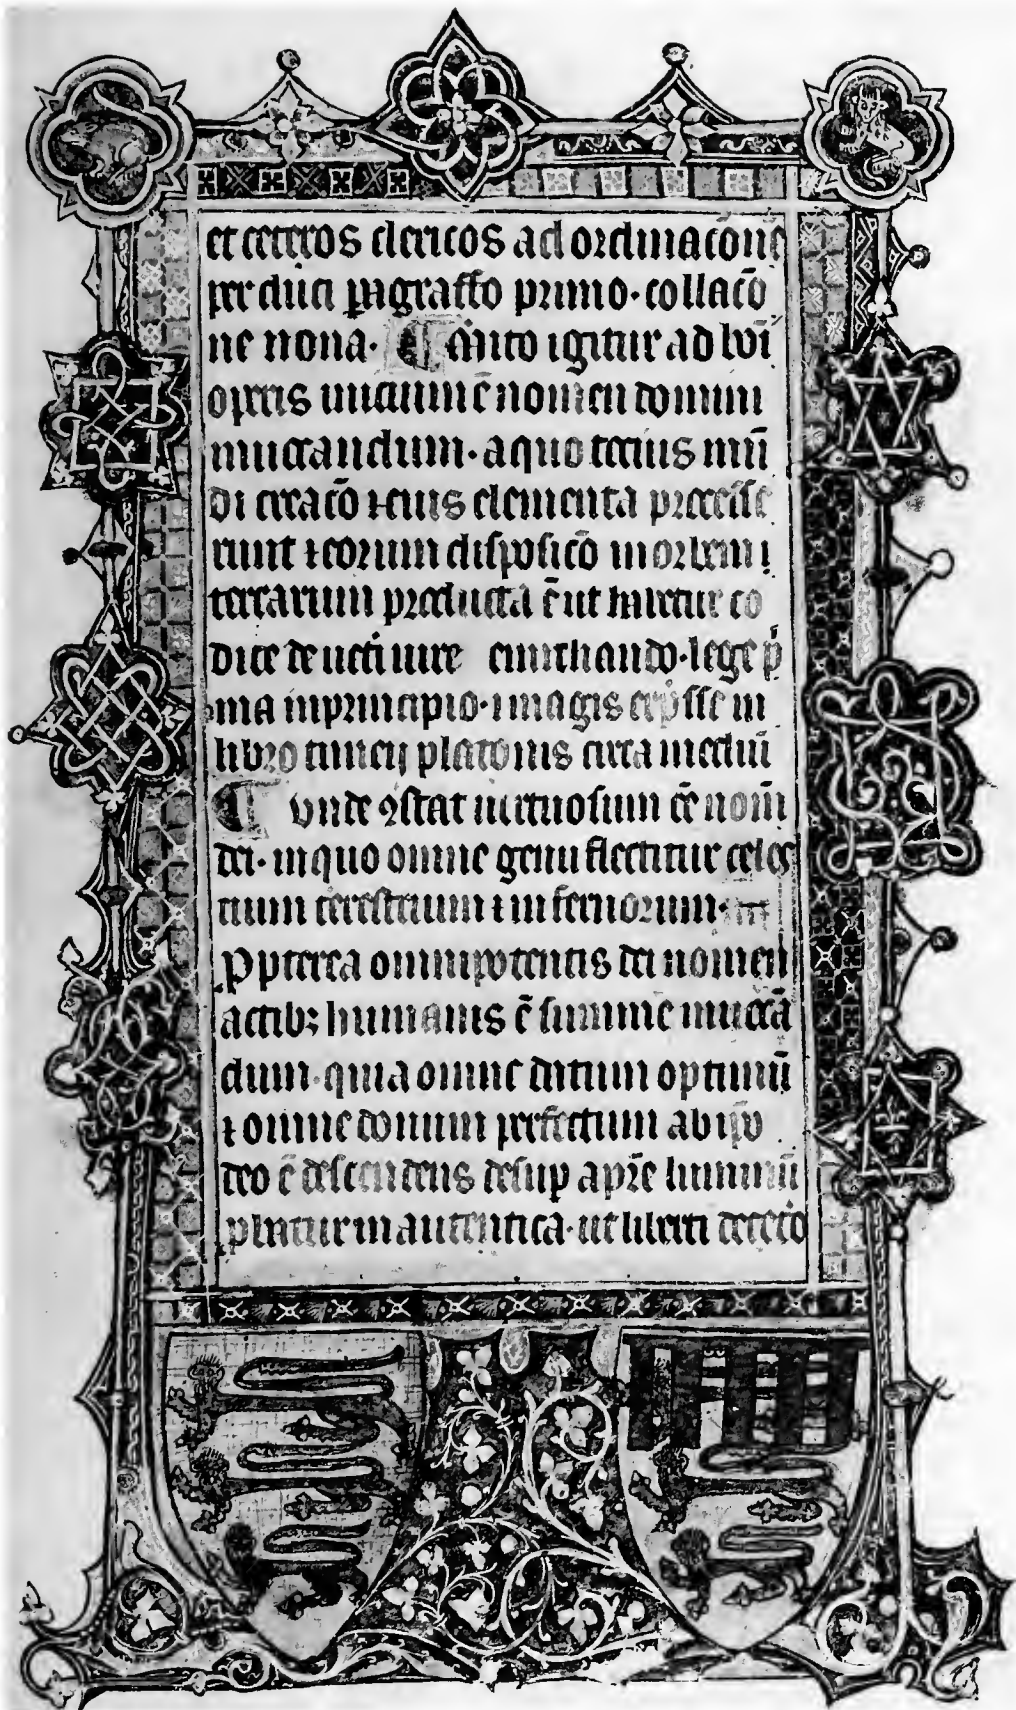 et ceteros clericos ad ordinacōnē
per duci pagraffo primo · collacō
ne nona · igitur ad
operis ē nomen domini
inuocandum · a quo tocius mū
di creacō ⁊ eius elementa precesse
runt ⁊ eorum disposicō in orbem
terrarum producta ē ut co
dice de iure enucliando · lege p̄
ma in principio · ⁊ magis in
libro timei platonis circa mediū
Vnde ꝯstat uirtuosum eē nomē
dei · in quo omne genu flectitur celes
tium terestrium ⁊ infernorum ·
Ppterea omnipotentis dei nomen
actibꝫ humanis ē summe inuocā
dum · quia omne datum optimū
⁊ omne donum perfectum ab ipō
deo ē descendens desup a pr̄e luminū
in autentica · ut liberti de cetō